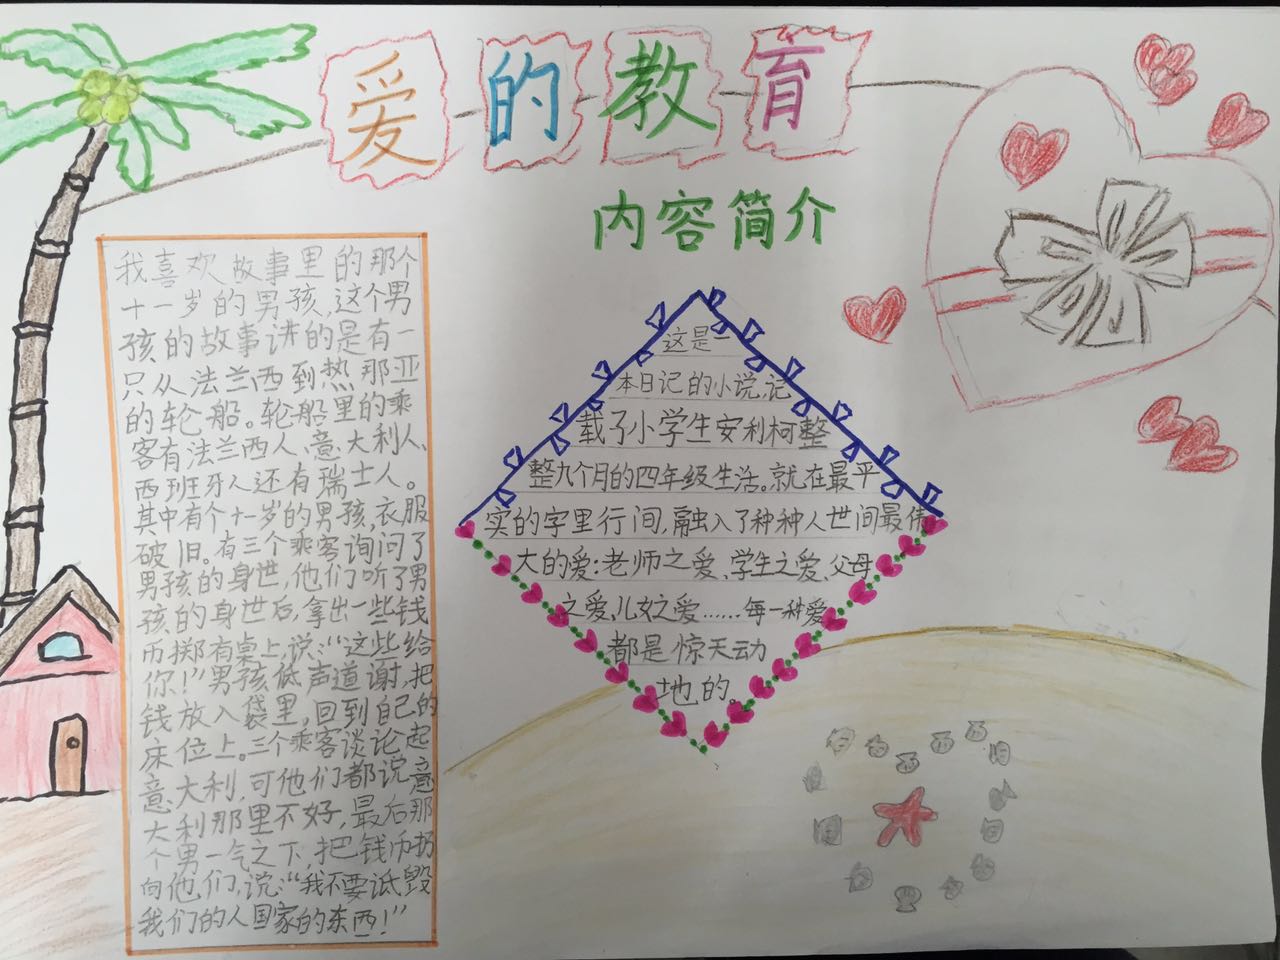 爱的教育
内容简介
我喜欢故事里的那个
十一岁的男孩,这个男
孩的故事讲的是有一
只从法兰西到热那亚
的轮船。轮船里的乘
客有法兰西人、意大利人、
西班牙人还有瑞士人。
其中有个十一岁的男孩,衣服
破旧。有三个乘客询问了
男孩的身世,他们听了男
孩的身世后,拿出一些钱
币掷有桌上,说:“这些给
你!”男孩低声道谢,把
钱放入袋里,回到自己的
床位上。三个乘客谈论起
意大利,可他们都说意
大利那里不好,最后那
个男一气之下,把钱币扔
向他们,说:“我不要诋毁
我们的人国家的东西!”
这是一
本日记的小说,记
载了小学生安利柯整
整九个月的四年级生活。就在最平
实的字里行间,融入了种种人世间最伟
大的爱:老师之爱、学生之爱、父母
之爱、儿女之爱……每一种爱
都是惊天动
地的。